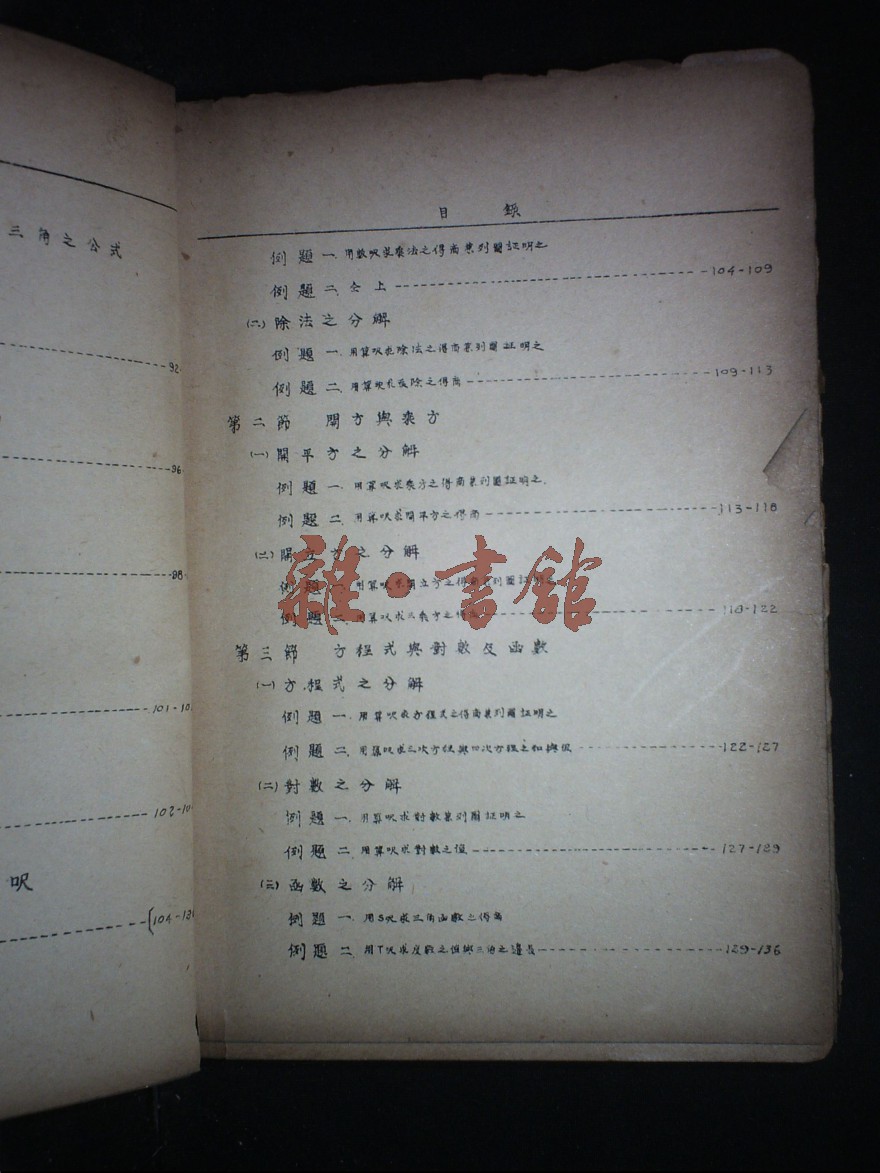 三角之公式
92
96
98
101-10
102-10
呎
(104-13
目 錄
例題 一. 用數呎求乘法之得商業列圖証明之
例題 二. 仝上 104-109
(二) 除法之分解
例題 一. 用算呎求除法之得商業列圖証明之
例題 二. 用算呎 乘除之得商 109-113
第二節 開方與乘方
(一) 開平方之分解
例題 一. 用算呎求乘方之得商業列圖証明之.
例題 二. 用算呎求開平方之得商 113-118
(二) 開立方之分解
例題 一. 用算呎求開立方之得商業列圖証明之
例題 二. 用算呎求三乘方之得商 118-122
雜·書館
第三節 方程式與對數及函數
(一) 方程式之分解
例題 一. 用算呎求方程式之得商業列圖証明之
例題 二. 用算呎求二次方程與四次方程之和與值 122-127
(二) 對數之分解
例題 一. 用算呎求對數業列圖証明之
例題 二. 用算呎求對數之值 127-129
(三) 函數之分解
例題 一. 用S呎求三角函數之得商
例題 二. 用T呎求度數之值與三角之邊長 129-136